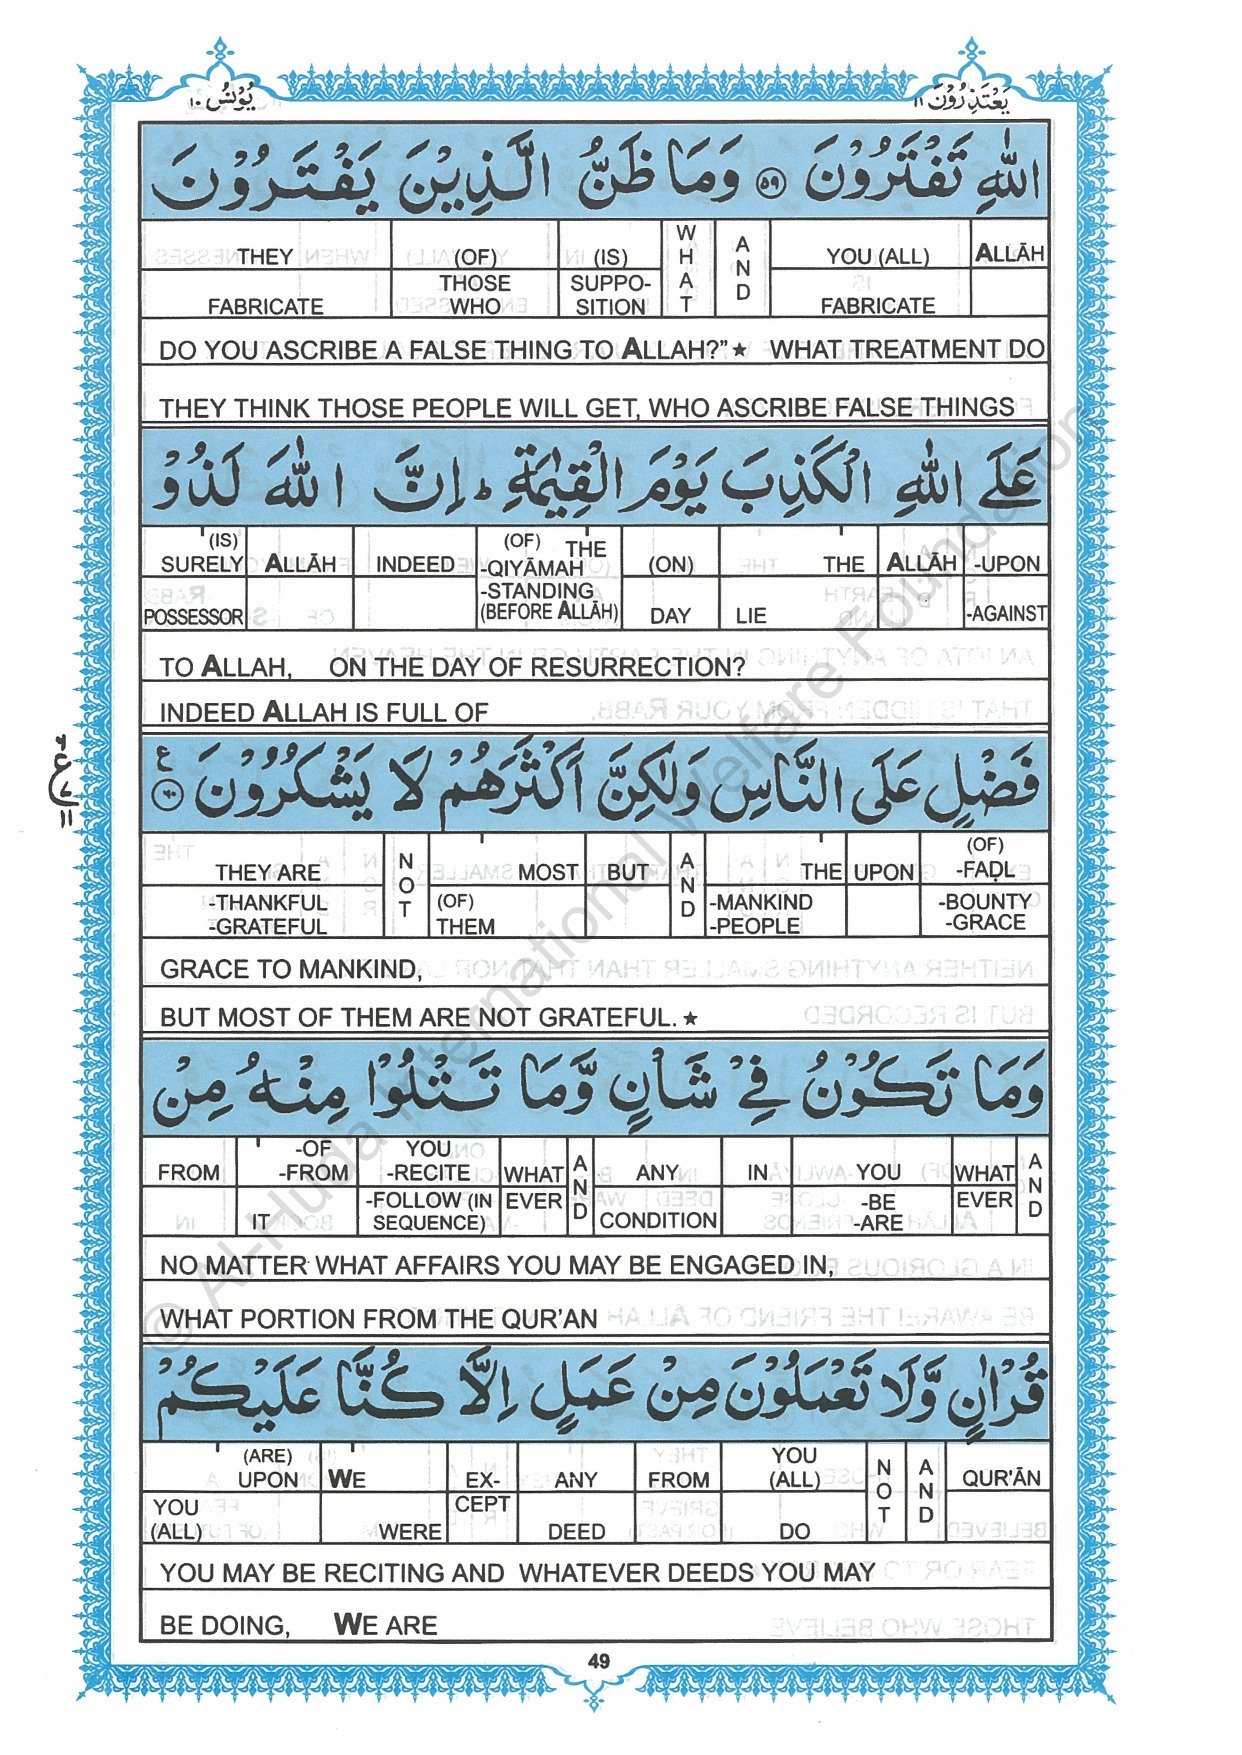 يونس ١٠
يعتذرون ١١
اللهِ تَفْتَرُوْنَ ﴿۵۹﴾ وَمَا ظَنُّ الَّذِيْنَ يَفْتَرُوْنَ
THEY (OF) (IS) WHAT AND YOU (ALL) ALLĀH
FABRICATE THOSE WHO SUPPO-SITION FABRICATE
DO YOU ASCRIBE A FALSE THING TO ALLAH?” ★ WHAT TREATMENT DO
THEY THINK THOSE PEOPLE WILL GET, WHO ASCRIBE FALSE THINGS
عَلَى اللهِ الْكَذِبَ يَوْمَ الْقِيٰمَةِ ؕ اِنَّ اللهَ لَذُوْ
(IS) SURELY ALLĀH INDEED (OF) THE -QIYĀMAH (ON) THE ALLĀH -UPON
POSSESSOR -STANDING (BEFORE ALLĀH) DAY LIE -AGAINST
TO ALLAH, ON THE DAY OF RESURRECTION?
INDEED ALLAH IS FULL OF
فَضْلٍ عَلَى النَّاسِ وَلٰكِنَّ اَكْثَرَهُمْ لَا يَشْكُرُوْنَ ﴿۶۰﴾ ع
THEY ARE NOT MOST BUT AND THE UPON (OF) -FAḌL
-THANKFUL -GRATEFUL (OF) THEM -MANKIND -PEOPLE -BOUNTY -GRACE
GRACE TO MANKIND,
BUT MOST OF THEM ARE NOT GRATEFUL. ★
وَمَا تَكُوْنُ فِيْ شَاْنٍ وَّمَا تَتْلُوْا مِنْهُ مِنْ
FROM -OF -FROM YOU -RECITE WHAT AND ANY IN YOU WHAT AND
IT -FOLLOW (IN SEQUENCE) EVER CONDITION -BE -ARE EVER
NO MATTER WHAT AFFAIRS YOU MAY BE ENGAGED IN,
WHAT PORTION FROM THE QUR’AN
قُرْاٰنٍ وَّلَا تَعْمَلُوْنَ مِنْ عَمَلٍ اِلَّا كُنَّا عَلَيْكُمْ
(ARE) UPON WE EX- ANY FROM YOU (ALL) NOT AND QUR’ĀN
YOU (ALL) WERE CEPT DEED DO
YOU MAY BE RECITING AND WHATEVER DEEDS YOU MAY
BE DOING, WE ARE
49
© Al-Huda International Welfare Foundation